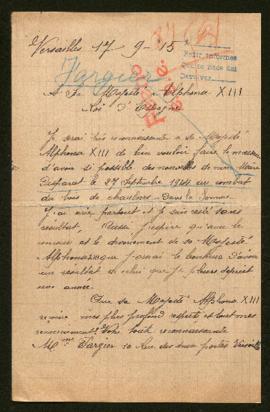 Versailles 17-9-15
Pedir informes
Fargier
A Sa Majesté Alphonse XIII
Roi d'Espagne
Je serai très reconnaissante à sa Majesté
Alphonse XIII de bien vouloir faire le nécessaire
d'avoir si possible des nouvelles de mon
Disparut le 24 Septembre 1914 au combat
du bois de chaulnes dans la Somme
J'ai écrit partout et je suis resté sans
resultat, j'espère qu'avec le
concours et le dévouement de sa Majesté
Alphonse XIII que j'aurai le bonheur d'avoir
un resultat de celui que je pleure depuis
une année.
Que sa Majesté Alphonse XIII
reçoive mes plus profond respects et tout mes
remerciements. Votre toute reconnaissante
Mme Fargier 20 Rue des deux portes Versailles